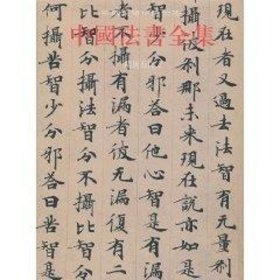 中國法書全集
現在者又過去法智有无量刹
攝彼刹那未來現在說亦如是
分邪荅曰他心智是有漏
者不攝有漏者彼无漏復有二
比智分攝法智分不攝比智分
何攝苦智少分邪荅曰苦智是